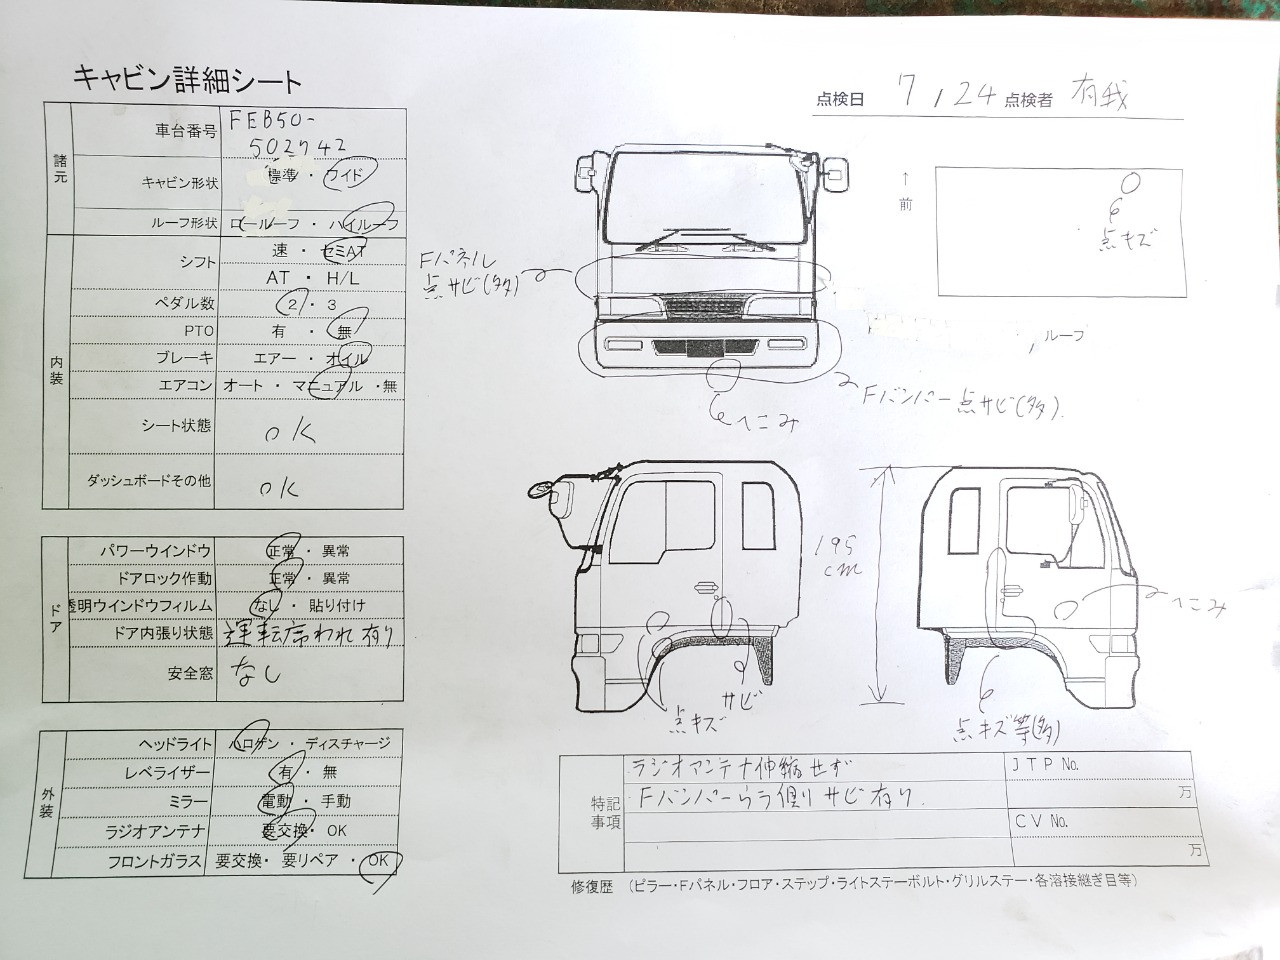 キャビン詳細シート
点検日 7/24 点検者 有我
諸元
車台番号 FEB50-
502742
キャビン形状 標準 ・ ワイド
ルーフ形状 ロールーフ ・ ハイルーフ
内装
シフト 速 ・ セミAT
AT ・ H/L
ペダル数 2 ・ 3
PTO 有 ・ 無
ブレーキ エアー ・ オイル
エアコン オート ・ マニュアル ・無
シート状態 OK
ダッシュボードその他 OK
ドア
パワーウインドウ 正常 ・ 異常
ドアロック作動 正常 ・ 異常
透明ウインドウフィルム なし ・ 貼り付け
ドア内張り状態 運転席われ有り
安全窓 なし
外装
ヘッドライト ハロゲン ・ ディスチャージ
レベライザー 有 ・ 無
ミラー 電動 ・ 手動
ラジオアンテナ 要交換・ OK
フロントガラス 要交換・ 要リペア ・ OK
Fパネル
点サビ(多)
↑
前
点キズ
ルーフ
Fバンパー点サビ(多).
へこみ
195
cm
へこみ
サビ
点キズ
点キズ等(多)
特記
事項
ラジオアンテナ伸縮せず
Fバンパーうラ側サビ有り.
JTP No.
万
CV No.
万
修復歴 (ピラー・Fパネル・フロア・ステップ・ライトステーボルト・グリルステー・各溶接継ぎ目等)